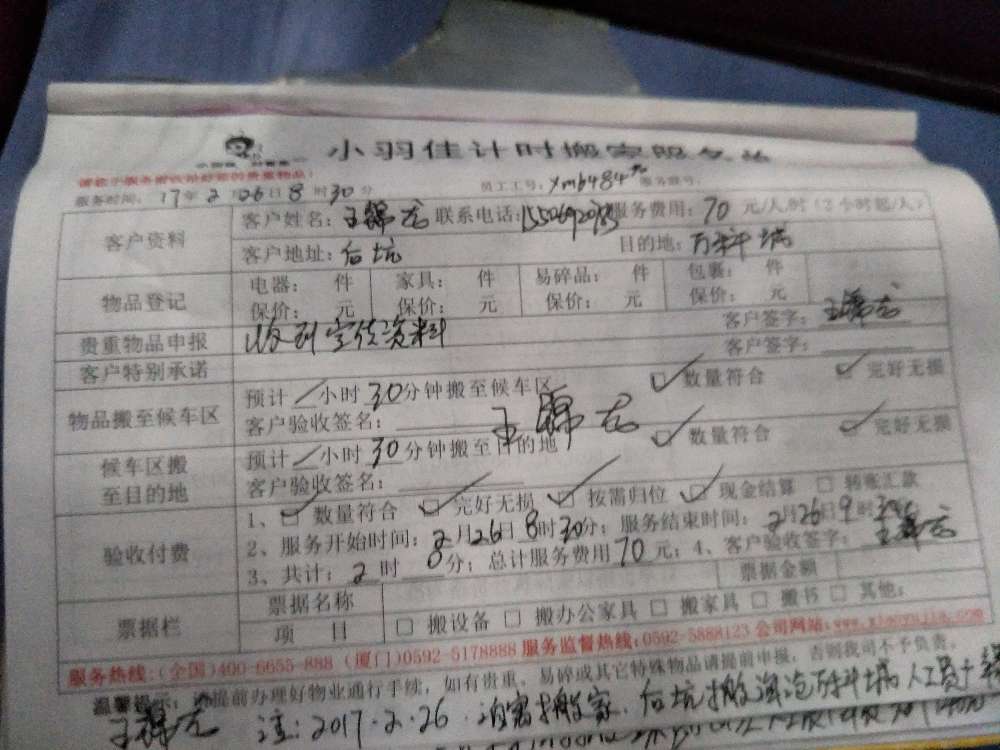 小羽佳计时搬家服务单
请在小服务前收拾好您的贵重物品!
服务时间: 17年2月26日8时30分 员工工号: xmb484 服务账号:
客户资料
客户姓名: 王锦龙 联系电话: 服务费用: 70 元/人/时 (2小时起/人)
客户地址: 后坑 目的地: 万科城
物品登记
电器: 件 家具: 件 易碎品: 件 包裹: 件
保价: 元 保价: 元 保价: 元 保价: 元
客户签字: 王锦龙
贵重物品申报 收到 资料 客户签字:
客户特别承诺
物品搬至候车区
预计 小时30分钟搬至候车区 数量符合 完好无损
客户验收签名: 王锦龙
候车区搬至目的地
预计 小时30分钟搬至目的地 数量符合 完好无损
客户验收签名:
验收付费
1、数量符合 完好无损 按需归位 现金结算 转账汇款
2、服务开始时间: 2月26日8时30分; 服务结束时间: 2月26日9时30分
3、共计: 2时0分; 总计服务费用70元; 4、客户验收签字: 王锦龙
票据栏
票据名称 票据金额
项 目 搬设备 搬办公家具 搬家具 搬书 其他:
服务热线: (全国)400-6655-888 (厦门)0592-5178888 服务监督热线: 0592-5888123 公司网站: www.xiaoyujia.com
温馨提示: 请提前办理好物业通行手续, 如有贵重、易碎或其它特殊物品请提前申报, 否则我司不予负责。
王锦龙 注: 2017.2.26. 搬家. 后坑搬 万科城 人工员